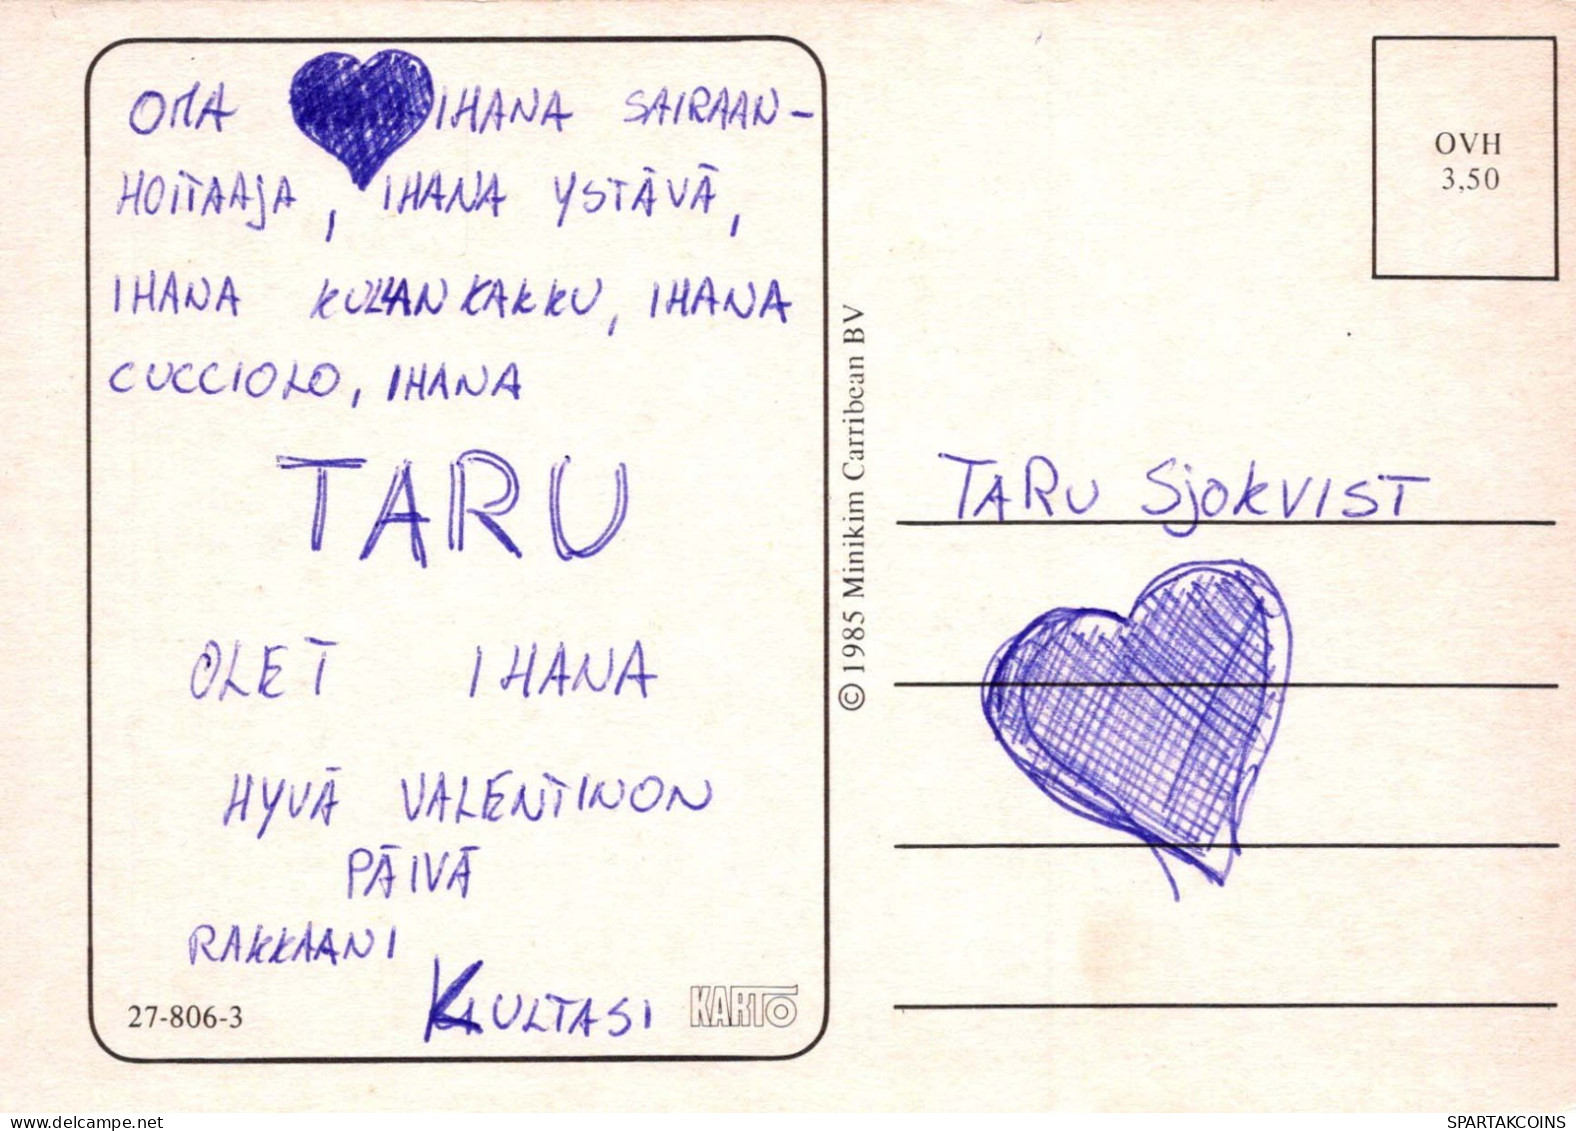 OMA IHANA SAIRAAN-
HOITAAJA, IHANA YSTÄVÄ,
IHANA KULLANKAKKU, IHANA
CUCCIOLO, IHANA
TARU
OLET IHANA
HYVÄ VALENTINON
PÄIVÄ
RAKKAANI
KULTASI
27-806-3
KARTO
© 1985 Minikim Carribean BV
OVH
3,50
TARU SjOKVIST
SPARTAKCOINS